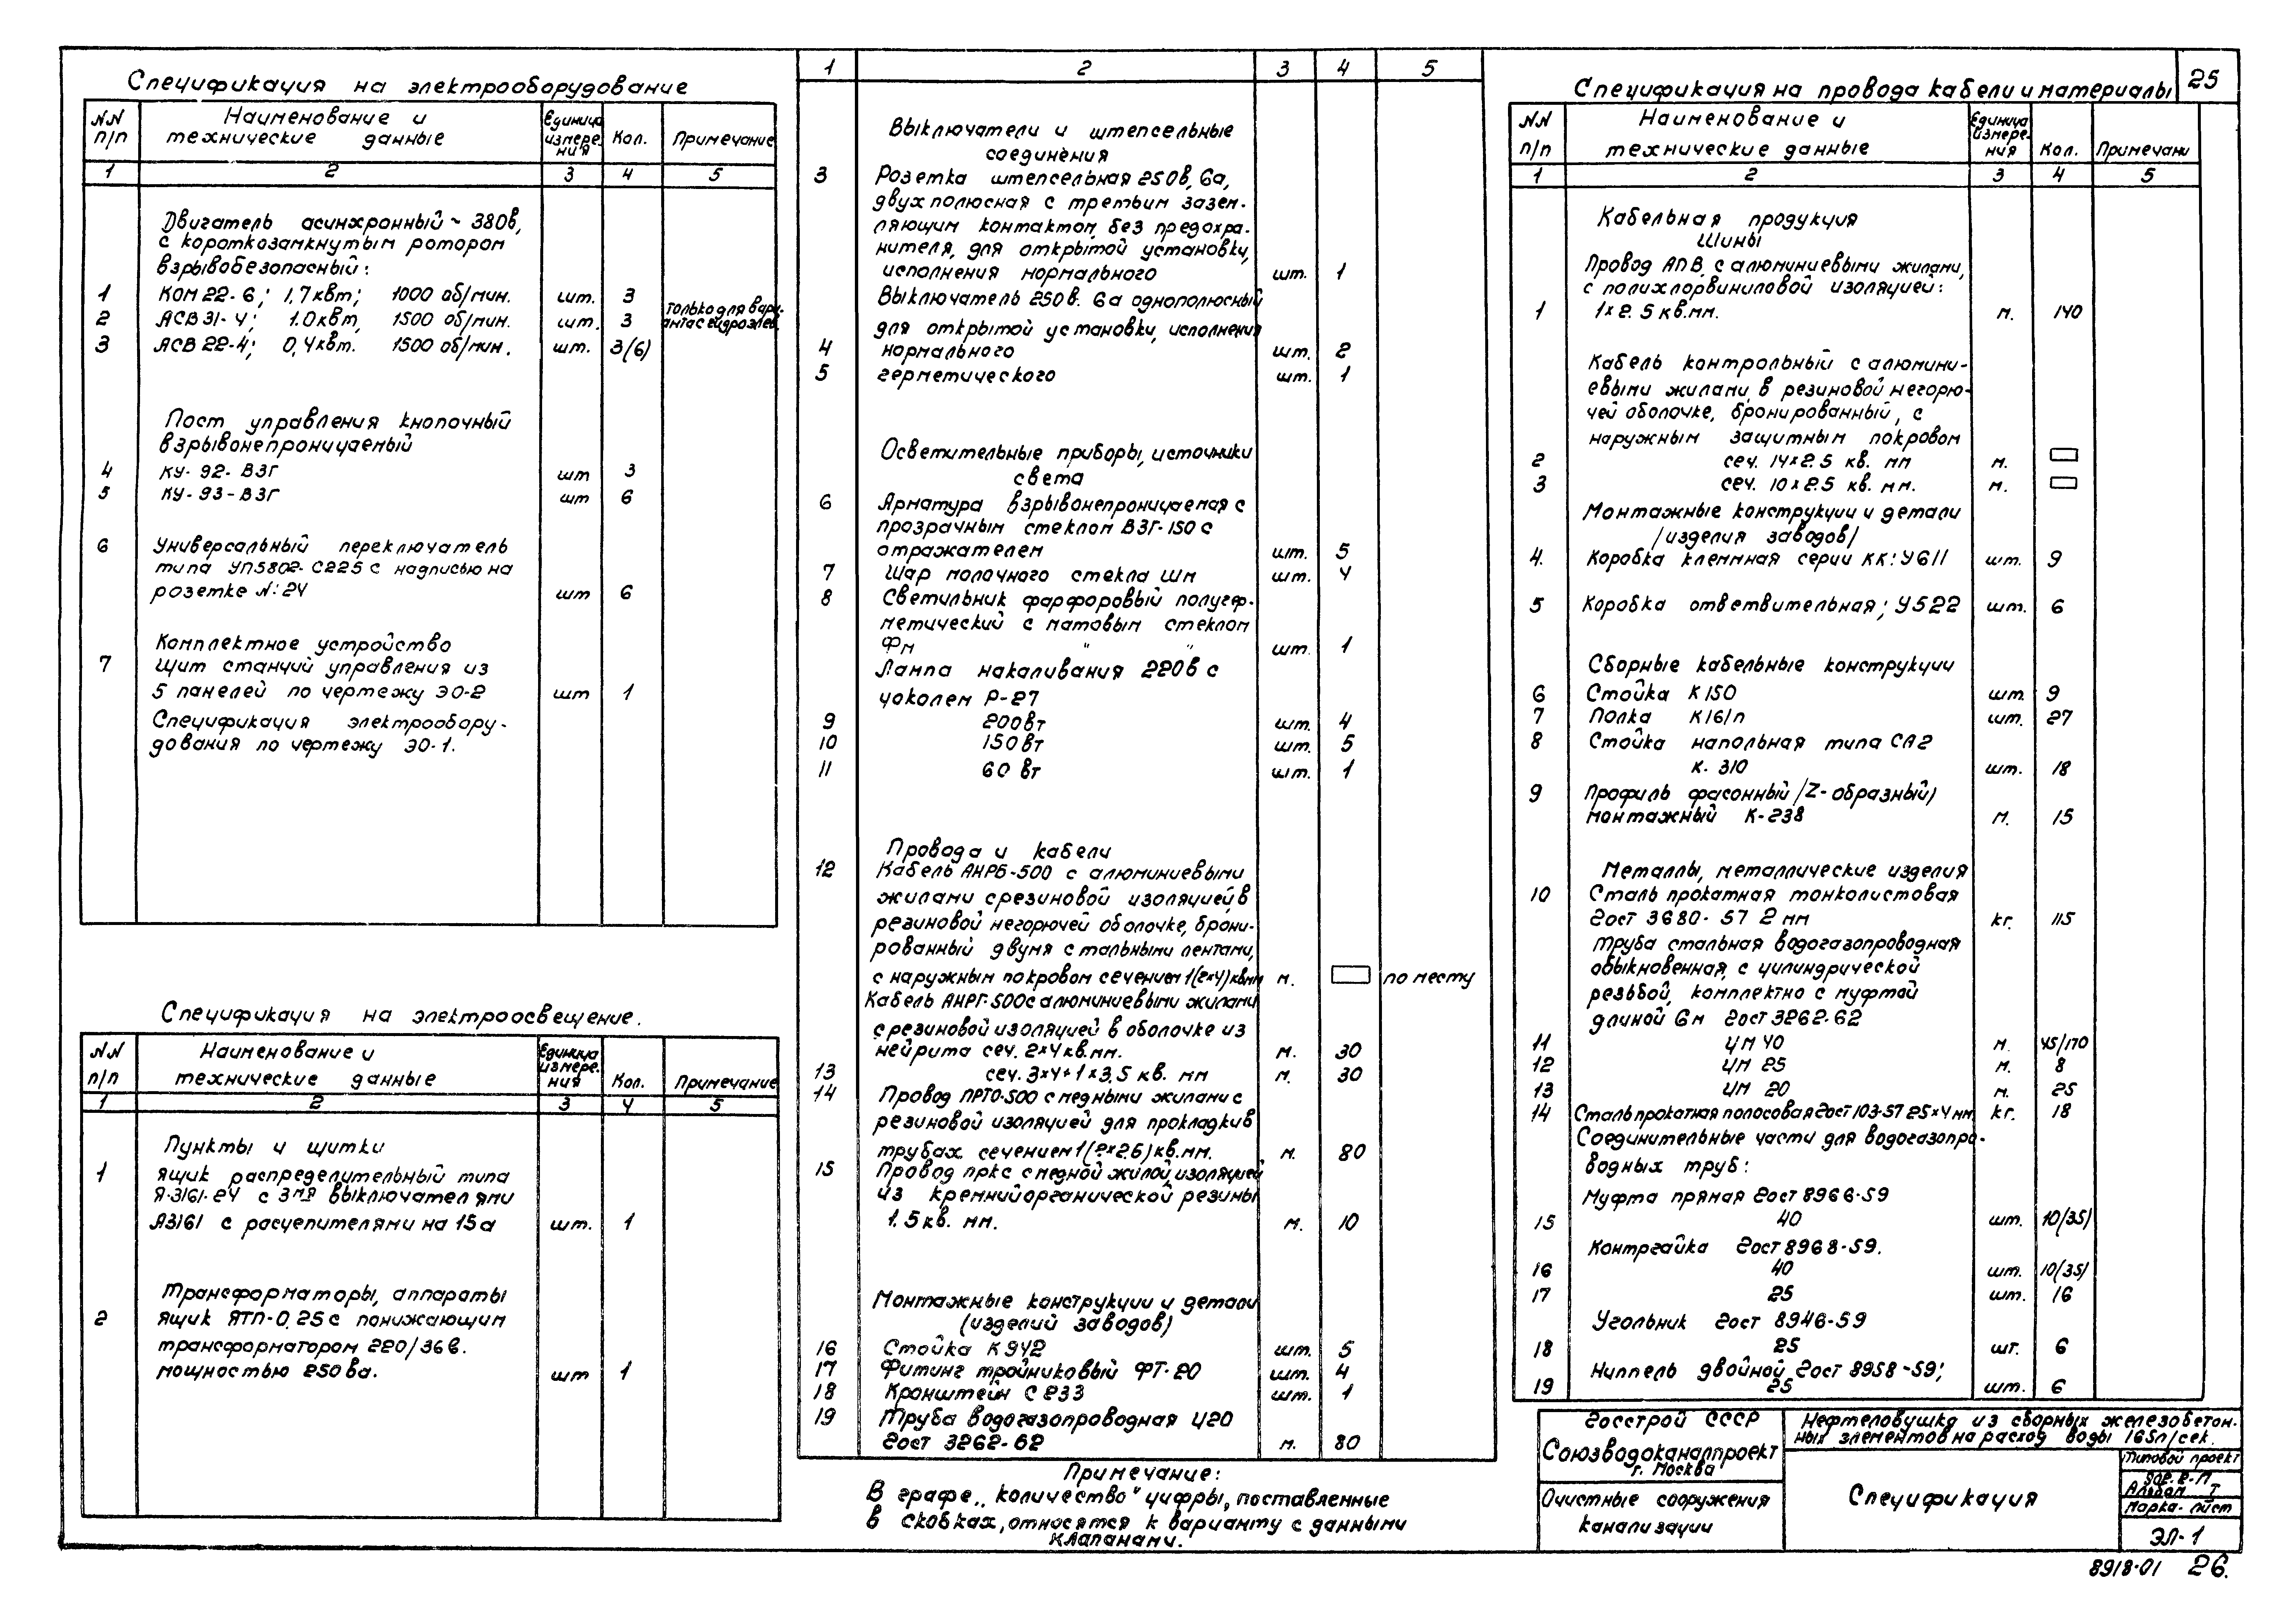 25
Спецификация на электрооборудование
NN п/п Наименование и технические данные Единица измерения Кол. Примечание
1 2 3 4 5
Двигатель асинхронный ~ 380в,
с короткозамкнутым ротором
взрывобезопасный:
1 КОМ 22-6; 1,7квт; 1000 об/мин. шт. 3
2 АСВ 31-4; 1.0квт, 1500 об/мин. шт. 3 только для вари-
анта с гидроэлев.
3 АСВ 22-4; 0,4квт. 1500 об/мин. шт. 3(6)
Пост управления кнопочный
взрывонепроницаемый
4 КУ-92-ВЗГ шт 3
5 КУ-93-ВЗГ шт 6
6 Универсальный переключатель
типа УП5802-С225 с надписью на
розетке N:24 шт 6
Комплектное устройство
7 Щит станций управления из
5 панелей по чертежу ЭО-2 шт 1
Спецификация электрообору-
дования по чертежу ЭО-1.
Спецификация на электроосвещение.
NN п/п Наименование и технические данные Единица измере-ния Кол. Примечание
1 2 3 4 5
Пункты и щитки
1 ящик распределительный типа
Я-3161-24 с 3мя выключателями
А3161 с расцепителями на 15а шт. 1
Трансформаторы, аппараты
2 ящик ЯТП-0,25 с понижающим
трансформатором 220/36в.
мощностью 250ва. шт 1
1 2 3 4 5
Выключатели и штепсельные
соединения
3 Розетка штепсельная 250в, 6а,
двухполюсная с третьим зазем-
ляющим контактом, без предохра-
нителя, для открытой установки,
исполнения нормального шт. 1
Выключатель 250в. 6а однополюсный
для открытой установки, исполнения
4 нормального шт. 2
5 герметического шт. 1
Осветительные приборы, источники
света
6 Арматура взрывонепроницаемая с
прозрачным стеклом ВЗГ-150 с
отражателем шт. 5
7 Шар молочного стекла Шм шт. 4
8 Светильник фарфоровый полугер-
метический с матовым стеклом
Фм " " шт. 1
Лампа накаливания 220в с
цоколем Р-27
9 200вт шт. 4
10 150вт шт. 5
11 60 вт шт. 1
Провода и кабели
12 Кабель АНРБ-500 с алюминиевыми
жилами с резиновой изоляцией, в
резиновой негорючей оболочке, брони-
рованный двумя стальными лентами,
с наружным покровом сечением 1(2×4)квмм м. по месту
Кабель АНРГ-500 с алюминиевыми жилами
с резиновой изоляцией в оболочке из
нейрита сеч. 2×4кв.мм. м. 30
13 сеч. 3×4+1×3,5 кв. мм м. 30
14 Провод ПРТО-500 с медными жилами с
резиновой изоляцией для прокладки в
трубах сечением 1(2×26)кв.мм. м. 80
15 Провод пркс с медной жилой, изоляцией
из кремнийорганической резины
1.5кв. мм. м. 10
Монтажные конструкции и детали
(изделий заводов)
16 Стойка К942 шт. 5
17 Фитинг тройниковый ФТ-20 шт. 4
18 Кронштейн С 233 шт. 1
19 Труба водогазопроводная Ц20
Гост 3262-62 м. 80
Примечание:
В графе „количество" цифры, поставленные
в скобках, относятся к варианту с данными
клапанами.
Спецификация на провода кабели и материалы
NN п/п Наименование и технические данные Единица измере-ния Кол. Примечани
1 2 3 4 5
Кабельная продукция
Шины
Провод АПВ, с алюминиевыми жилами,
с полихлорвиниловой изоляцией:
1 1×2.5 кв.мм. м. 140
Кабель контрольный с алюмини-
евыми жилами, в резиновой негорю-
чей оболочке, бронированный, с
наружным защитным покровом
2 сеч. 14×2.5 кв. мм м.
3 сеч. 10×2.5 кв. мм. м.
Монтажные конструкции и детали
/изделия заводов/
4. Коробка клеммная серии КК: У611 шт. 9
5 Коробка ответвительная; У522 шт. 6
Сборные кабельные конструкции
6 Стойка К150 шт. 9
7 Полка К161п шт. 27
8 Стойка напольная типа СЛ2
К. 310 шт. 18
9 Профиль фасонный /Z-образный/
монтажный К-238 м. 15
Металлы, металлические изделия
10 Сталь прокатная тонколистовая
Гост 3680-57 2 мм кг. 115
Труба стальная водогазопроводная
обыкновенная, с цилиндрической
резьбой, комплектно с муфтой
длиной 6м Гост 3262-62
11 ЦМ 40 м. 45/170
12 ЦМ 25 м. 8
13 ЦМ 20 м. 25
14 Сталь прокатная полосовая Гост 103-57 25×4мм кг. 18
Соединительные части для водогазопро-
водных труб:
Муфта прямая Гост 8966-59
15 40 шт. 10/35/
Контргайка Гост 8968-59.
16 40 шт. 10/35/
17 25 шт. 16
Угольник Гост 8946-59
18 25 шт. 6
Ниппель двойной Гост 8958-59;
19 25 шт. 6
Госстрой СССР
Союзводоканалпроект
г. Москва
Очистные сооружения
канализации
Нефтеловушка из сборных железобетон-
ных элементов на расход воды 165л/сек.
Спецификация
Типовой проект
902-2-17
Альбом I
Марка-лист
ЭЛ-1
8918-01 26.